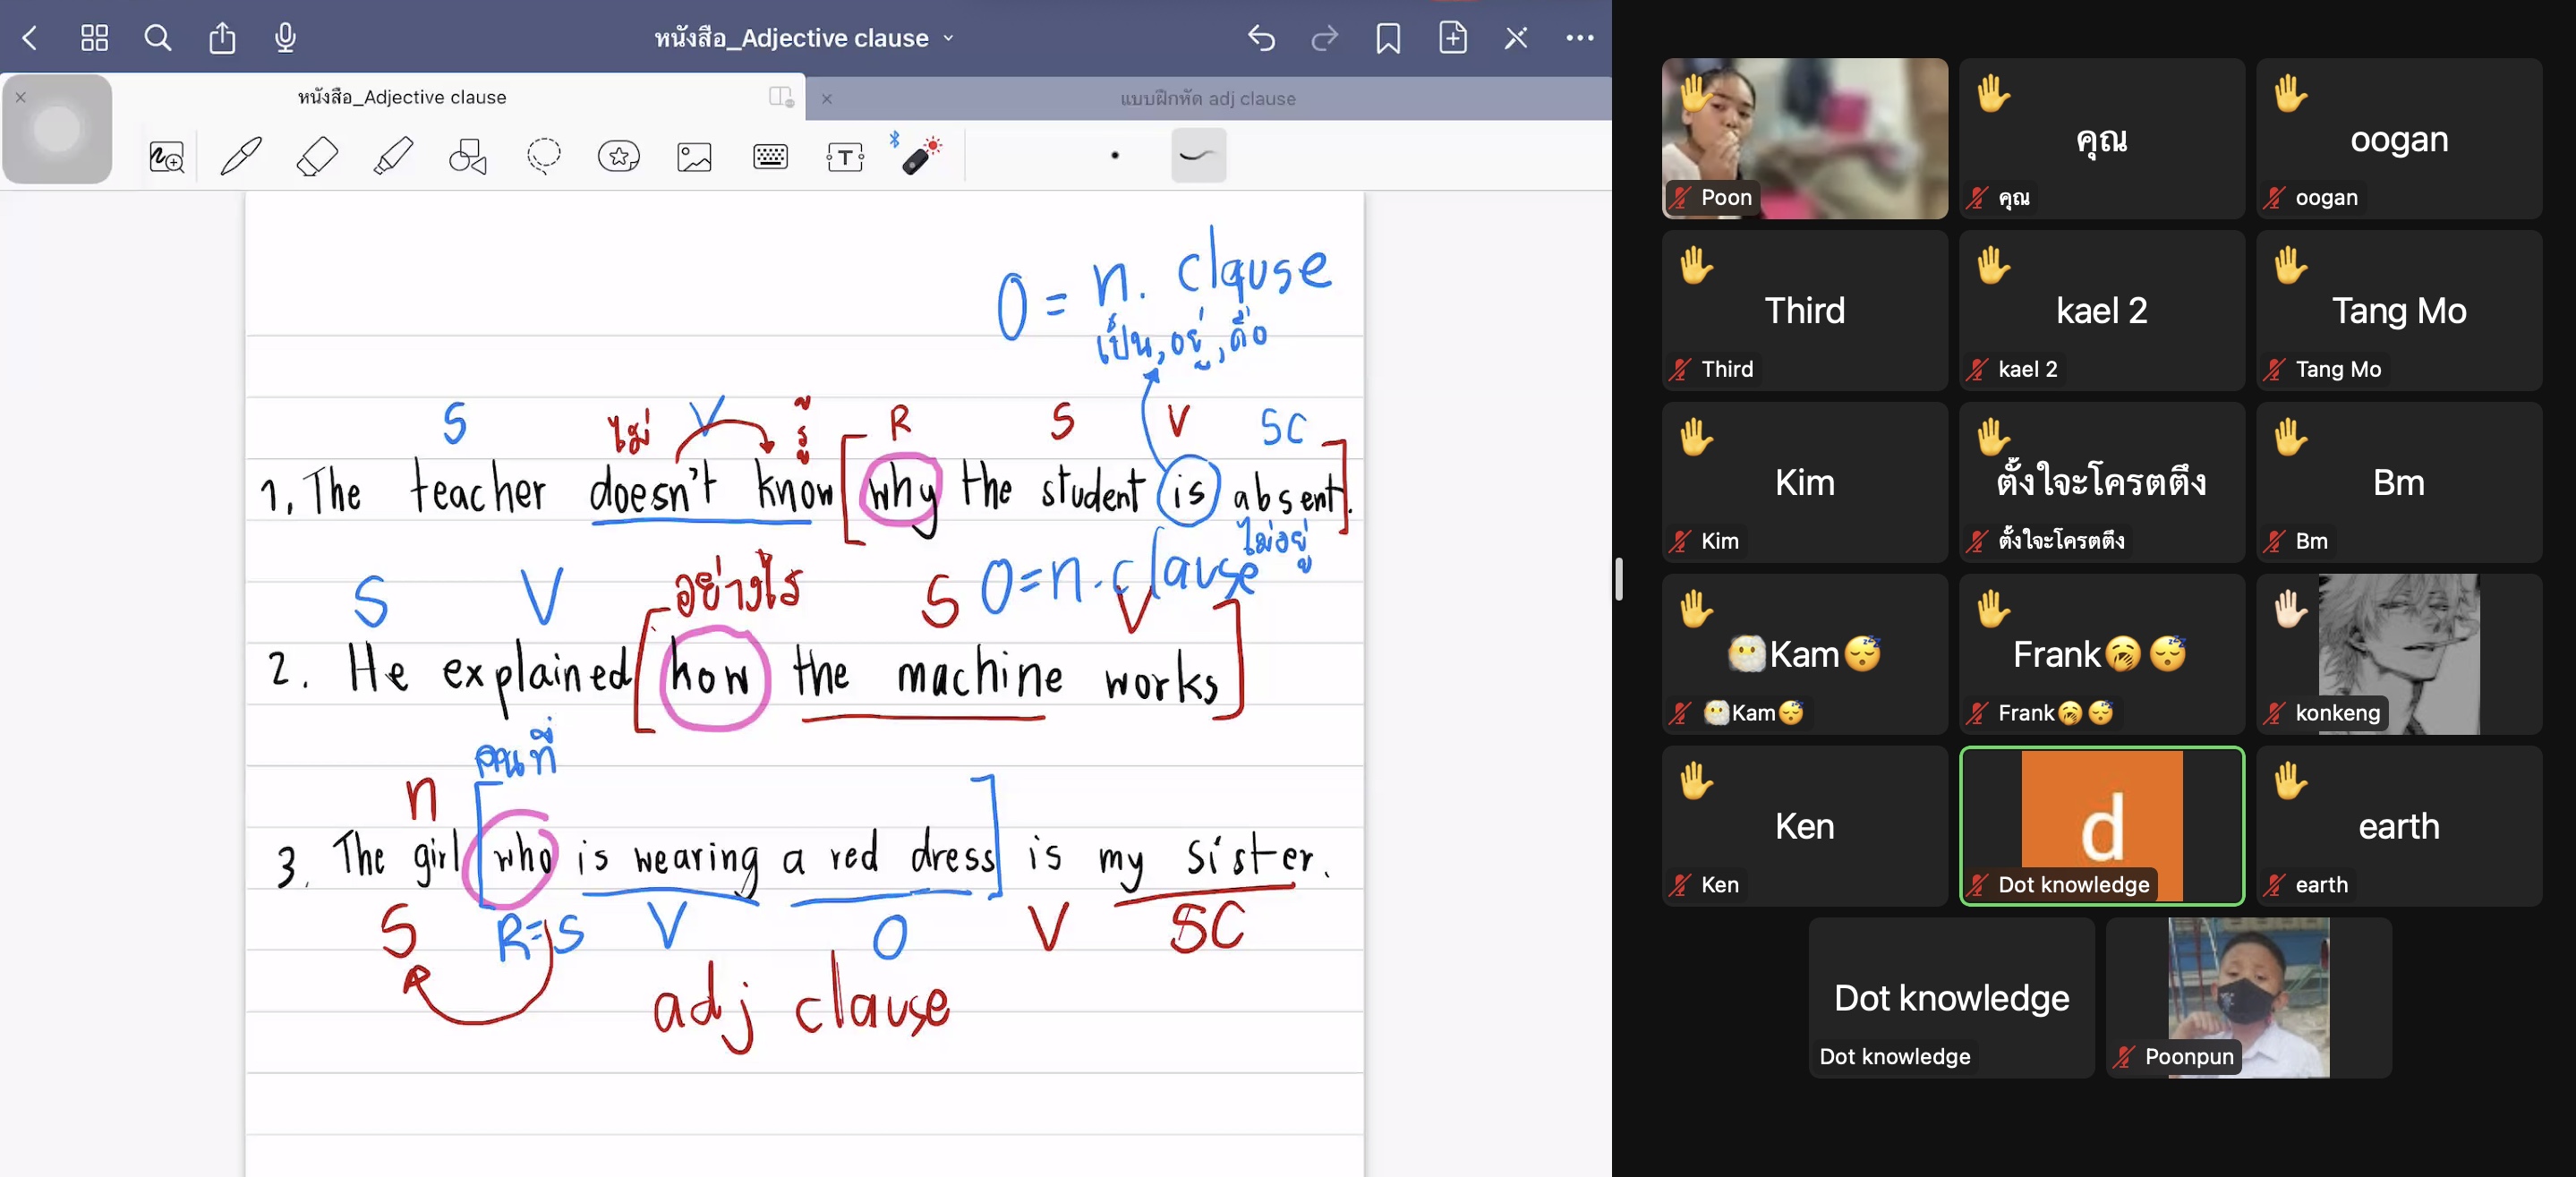 หนังสือ_Adjective clause
หนังสือ_Adjective clause
แบบฝึกหัด adj clause
O = n. clause
เป็น, อยู่, คือ
S ไม่ V รู้ R S V SC
1. The teacher doesn't know [why the student is absent].
ไม่อยู่
S V อย่างไร S O=n.clause V
2. He explained [how the machine works]
คนที่
n
3. The girl [who is wearing a red dress] is my sister.
S R=S V O V SC
adj clause
Poon
คุณ
คุณ
oogan
oogan
Third
Third
kael 2
kael 2
Tang Mo
Tang Mo
Kim
Kim
ตั้งใจจะโครตตึง
ตั้งใจจะโครตตึง
Bm
Bm
Kam
Kam
Frank
Frank
konkeng
Ken
Ken
d
Dot knowledge
earth
earth
Dot knowledge
Dot knowledge
Poonpun